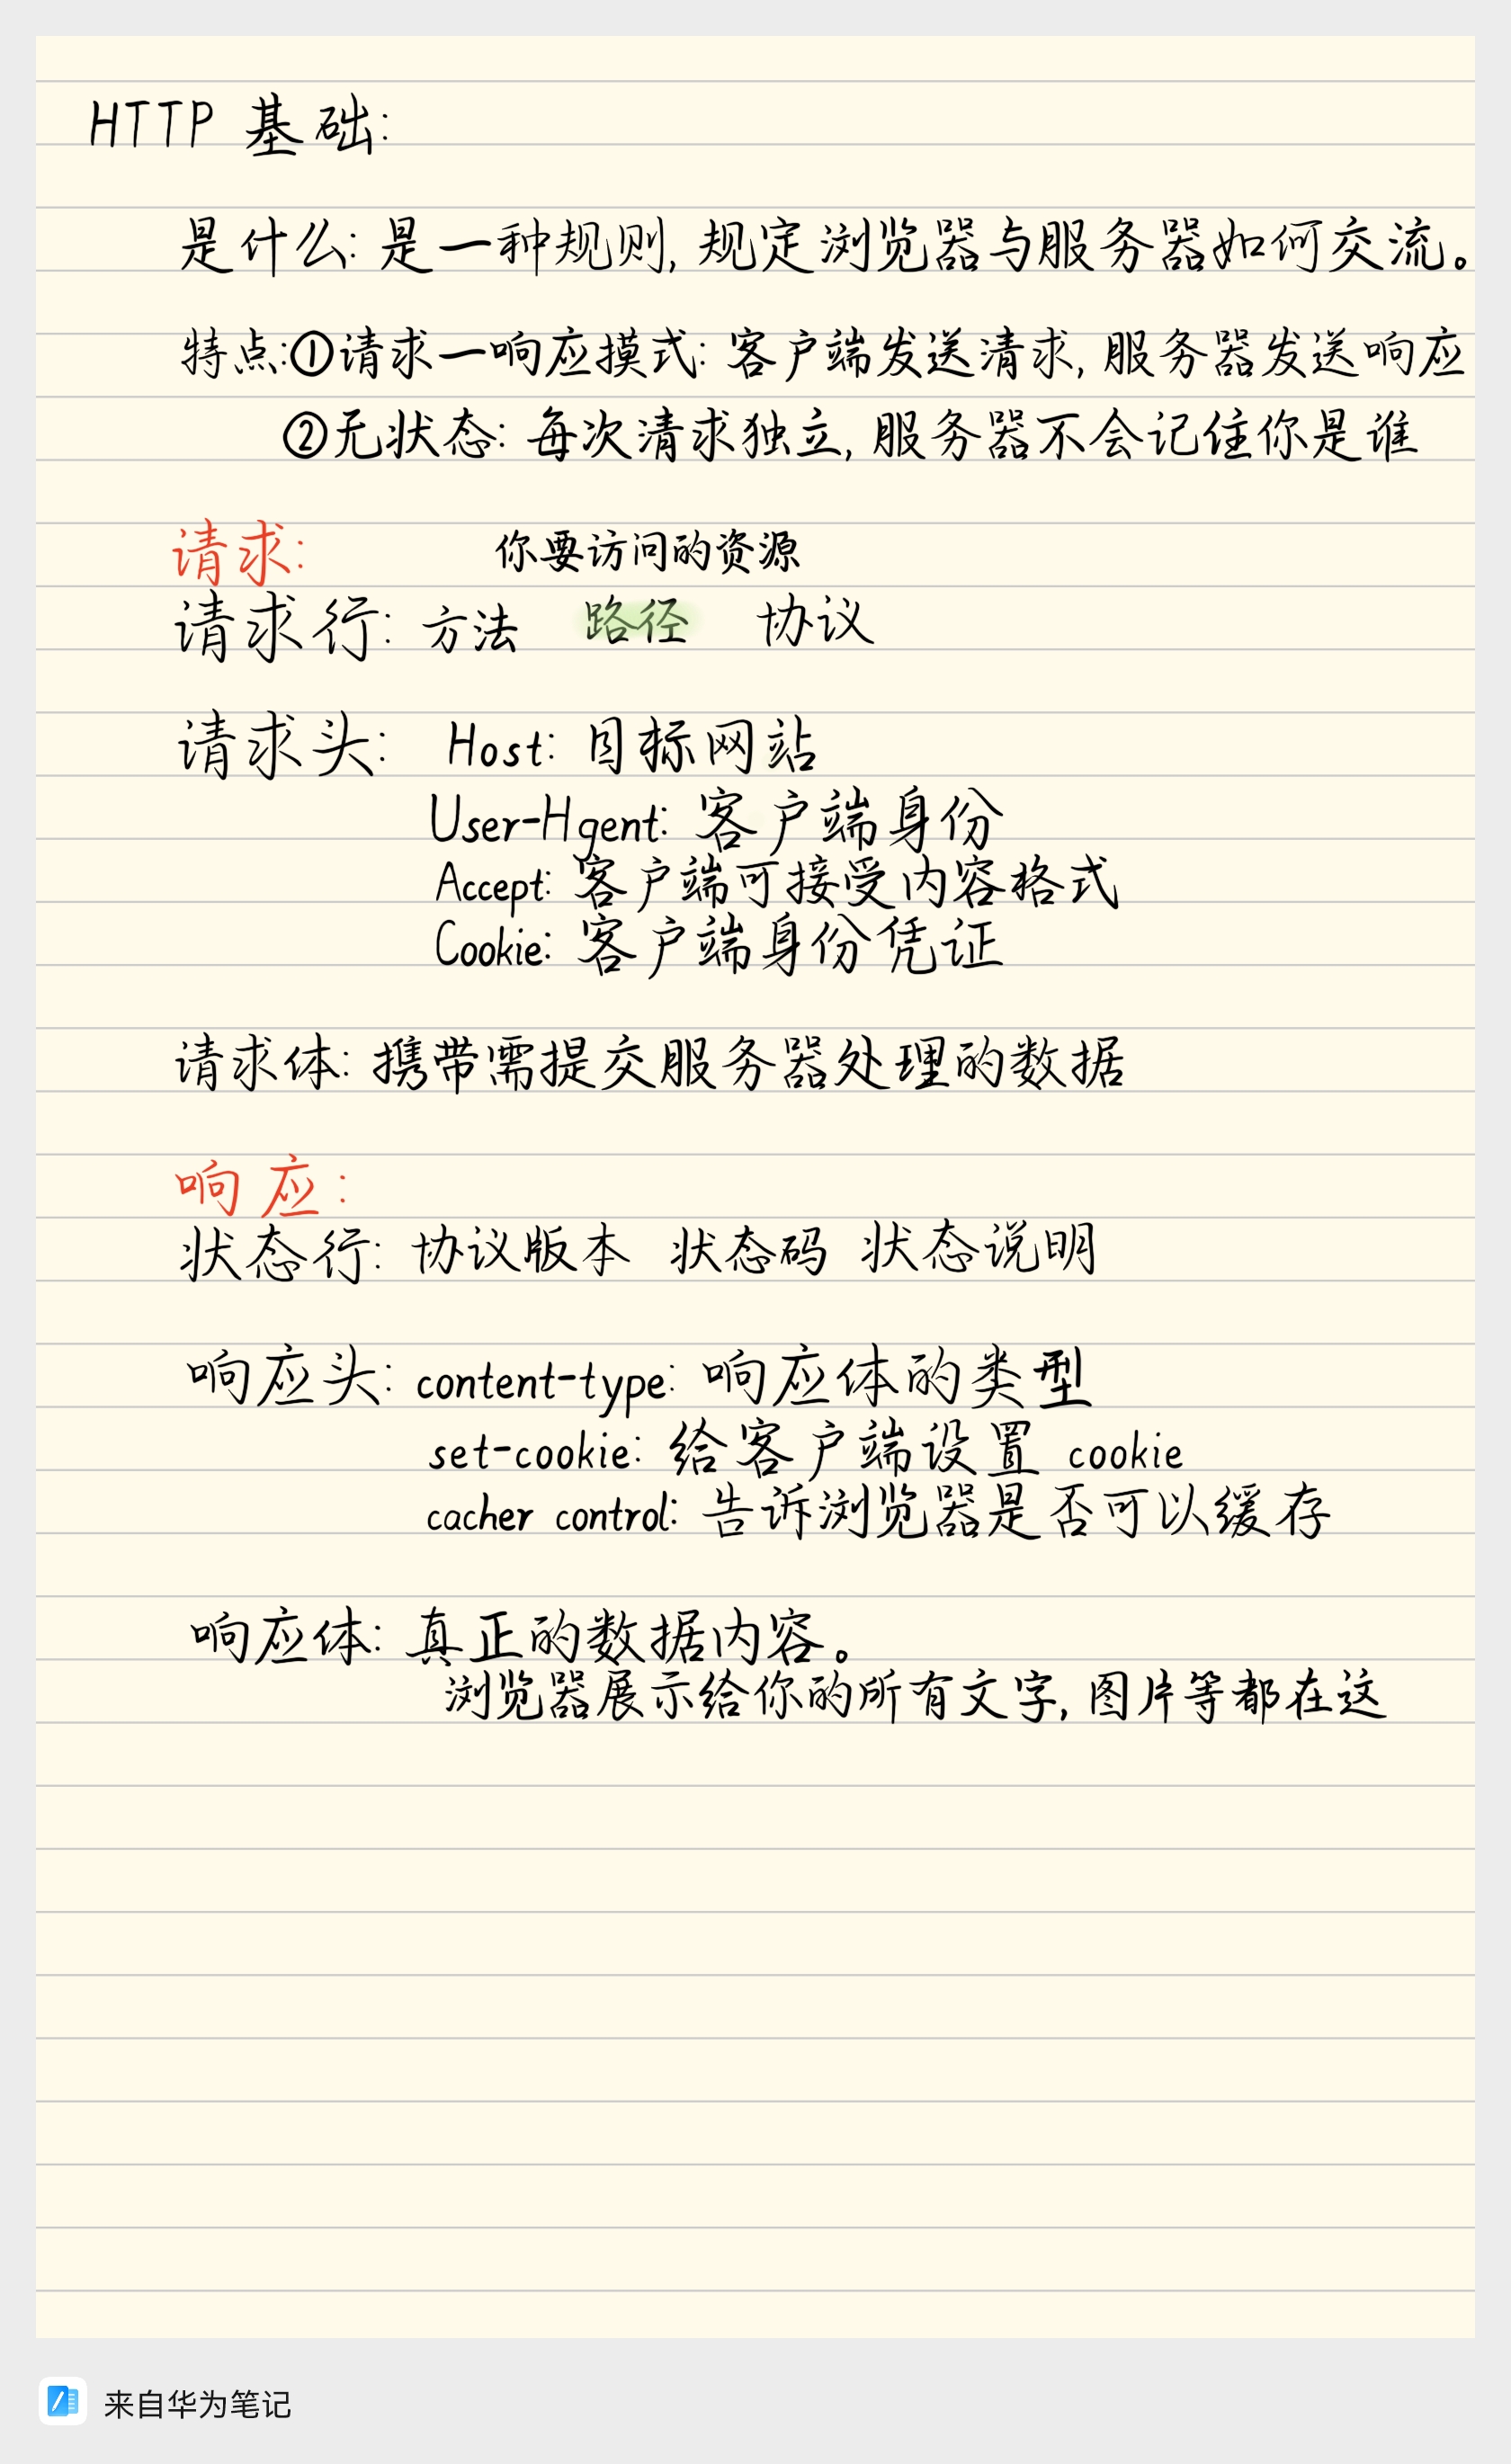 HTTP 基础:
是什么: 是一种规则, 规定浏览器与服务器如何交流。
特点:①请求一响应摸式: 客户端发送清求, 服务器发送响应
②无状态: 每次清求独立, 服务器不会记住你是谁
请求:
你要访问的资源
请求行: 方法 路径 协议
请求头: Host: 目标网站
User-Hgent: 客户端身份
Accept: 客户端可接受内容格式
Cookie: 客户端身份凭证
请求体: 携带需提交服务器处理的数据
响应:
状态行: 协议版本 状态码 状态说明
响应头: content-type: 响应体的类型
set-cookie: 给客户端设置 cookie
cacher control: 告诉浏览器是否可以缓存
响应体: 真正的数据内容。
浏览器展示给你的所有文字, 图片等都在这
来自华为笔记